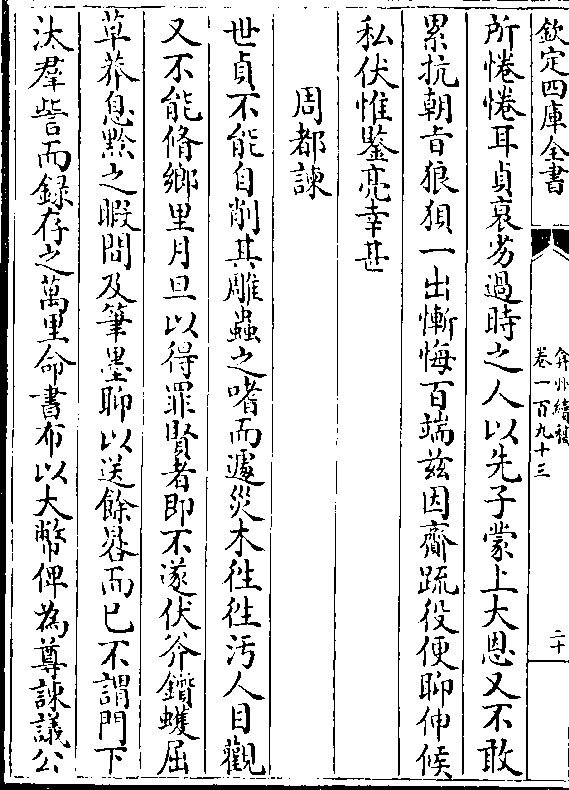 欽定四庫全書
弇州續稿
卷一百九十三
二十
所惓惓耳貞衰劣過時之人以先子蒙上大恩又不敢
累抗朝旨狼狽一出慚悔百端兹因齎䟽役便聊伸候
私伏惟鑒亮幸甚
周都諫
世貞不能自削其雕蟲之嗜而遽災木徃徃汚人目觀
又不能脩鄉里月旦以得罪賢者即不遂伏斧鑕蠖屈
草莽息黥之暇間及筆墨聊以送餘晷而已不謂門下
汰羣訾而録存之萬里命書布以大幣俾為尊諫議公